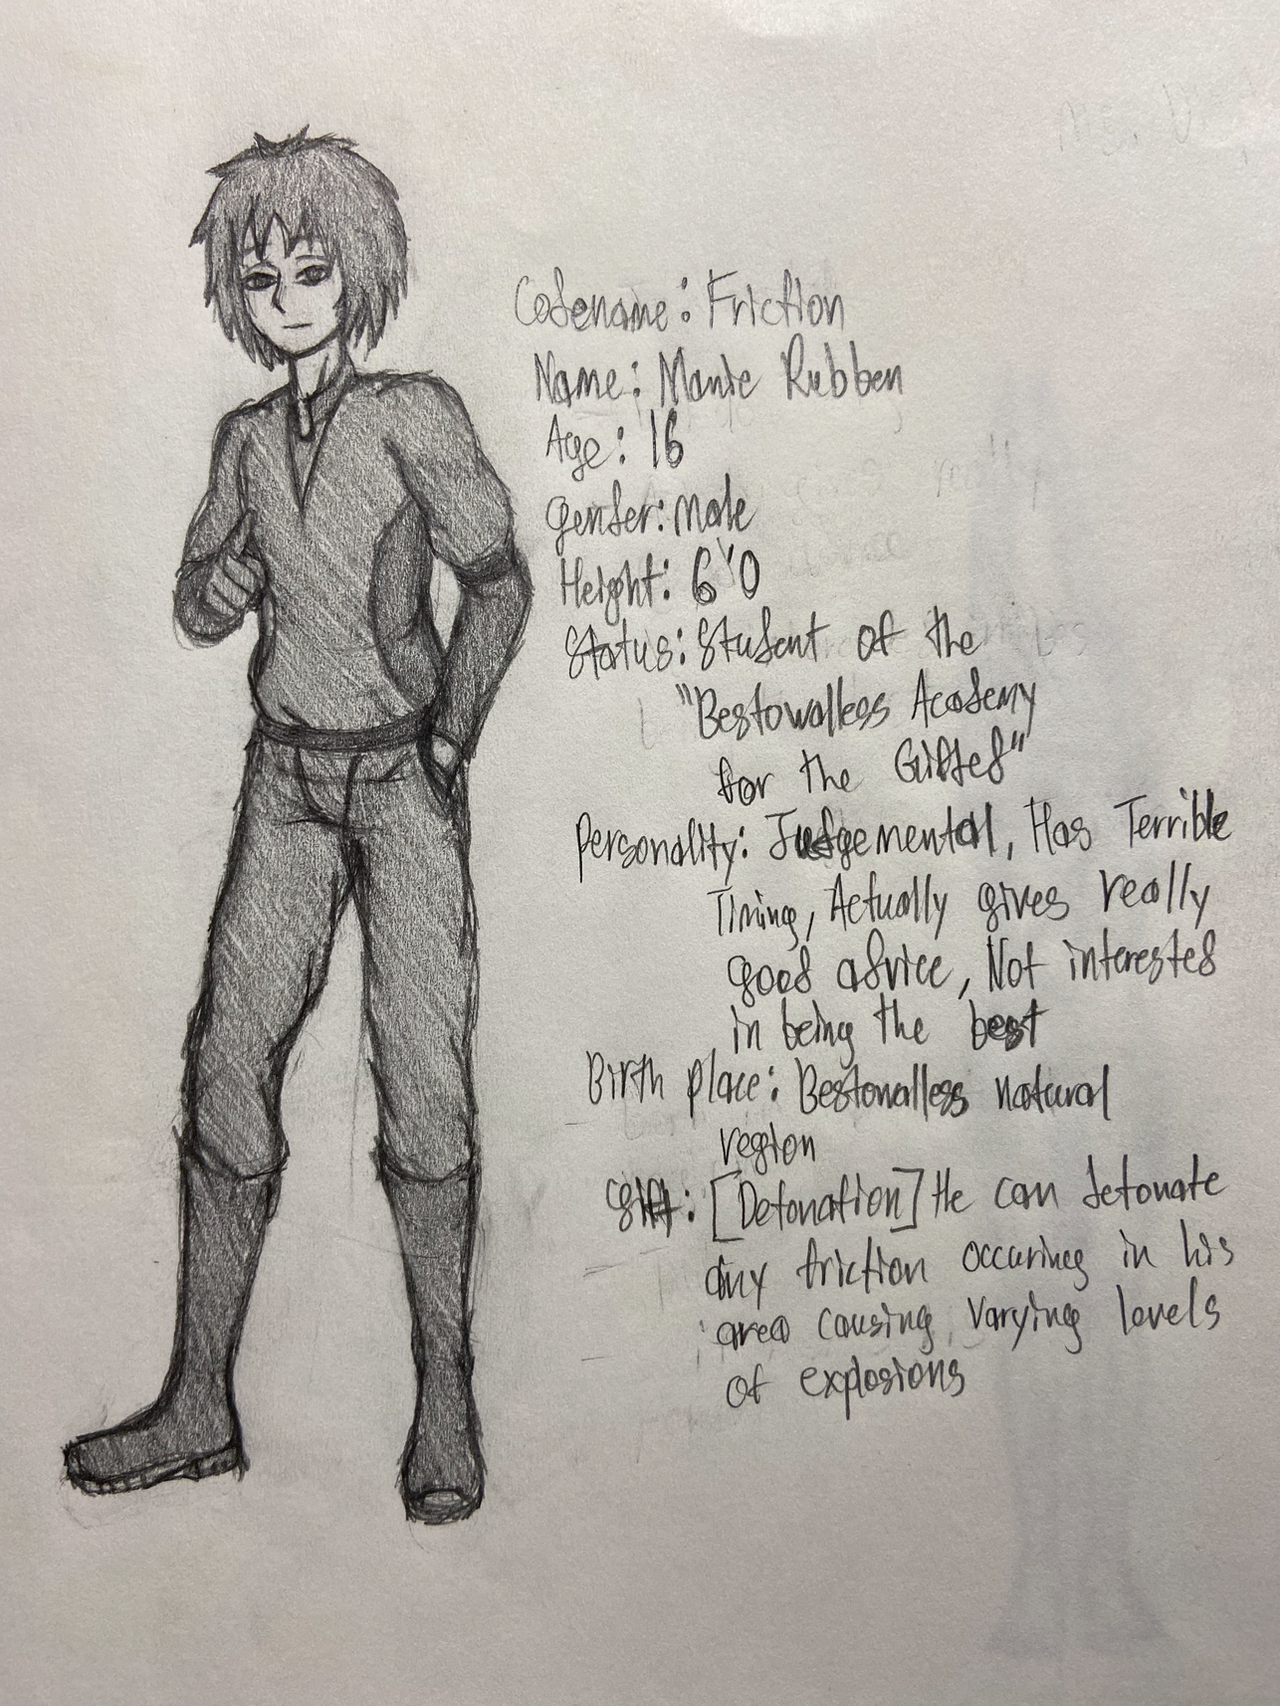 Codename: Friction
Name: Mante Rubben
Age: 16
Gender: Male
Height: 6'0
Status: Student of the
"Bestowalless Academy
for the Gifted"
Personality: Judgemental, Has Terrible
Timing, Actually gives really
good advice, Not interested
in being the best
Birth place: Bestowalless natural
region
Gift: [Detonation] He can detonate
any friction occuring in his
area causing varying levels
of explosions